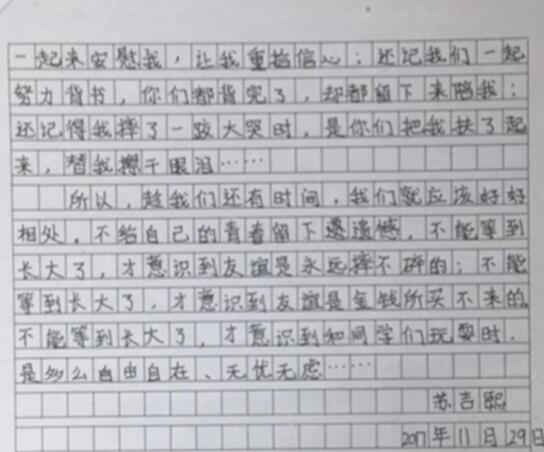 一起来安慰我，让我重拾信心；还记我们一起
努力背书，你们都背完了，却都留下来陪我；
还记得我摔了一跤大哭时，是你们把我扶了起
来，替我擦干眼泪……
所以，趁我们还有时间，我们就应该好好
相处。不给自己的青春留下遗憾。不能等到
长大了，才意识到友谊是永远摔不碎的；不能
等到长大了，才意识到友谊是金钱所买不来的。
不能等到长大了，才意识到和同学们玩耍时，
是多么自由自在、无忧无虑……
苏吉熙
2017年11月29日